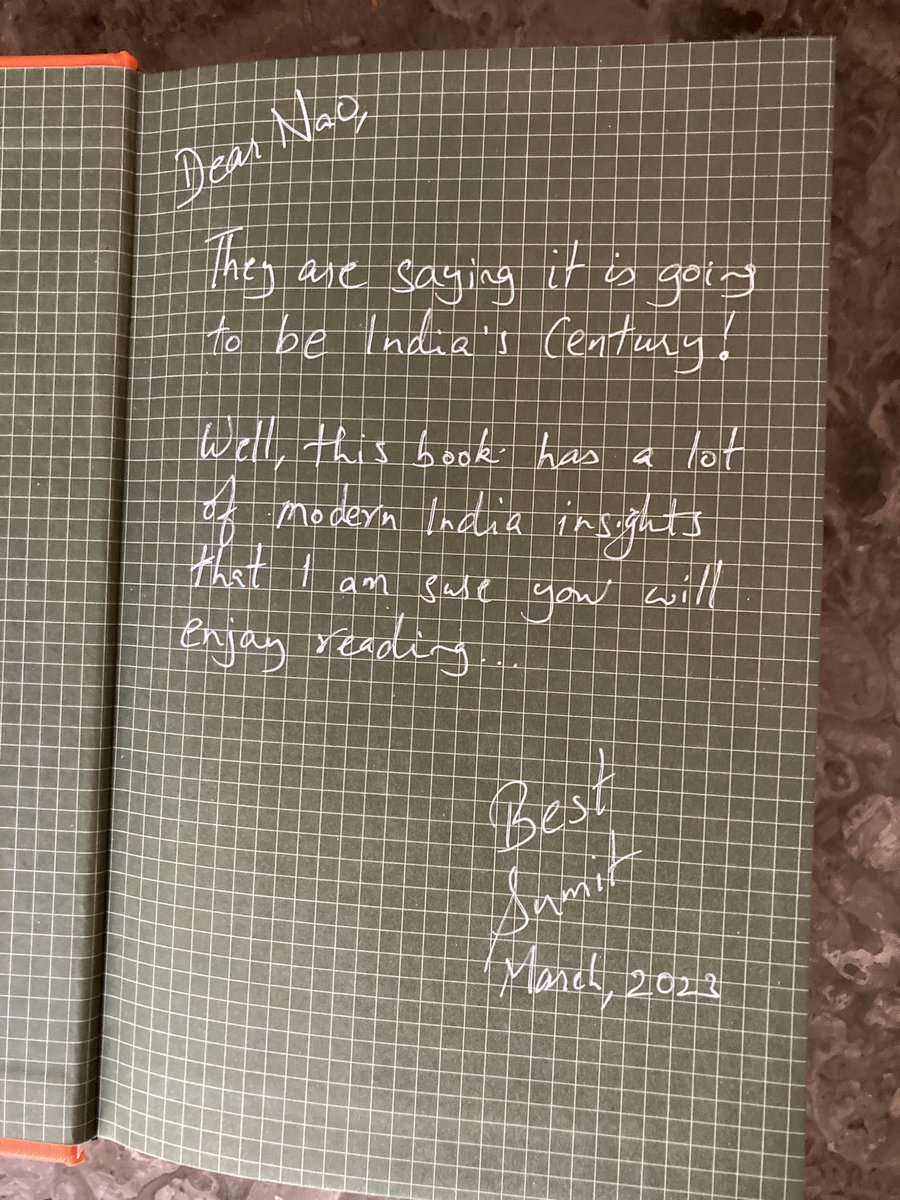 Dear Nao,
They are saying it is going
to be India's Century!
Well, this book has a lot
of modern India insights
that I am sure you will
enjoy reading...
Best
Sumit
March, 2023